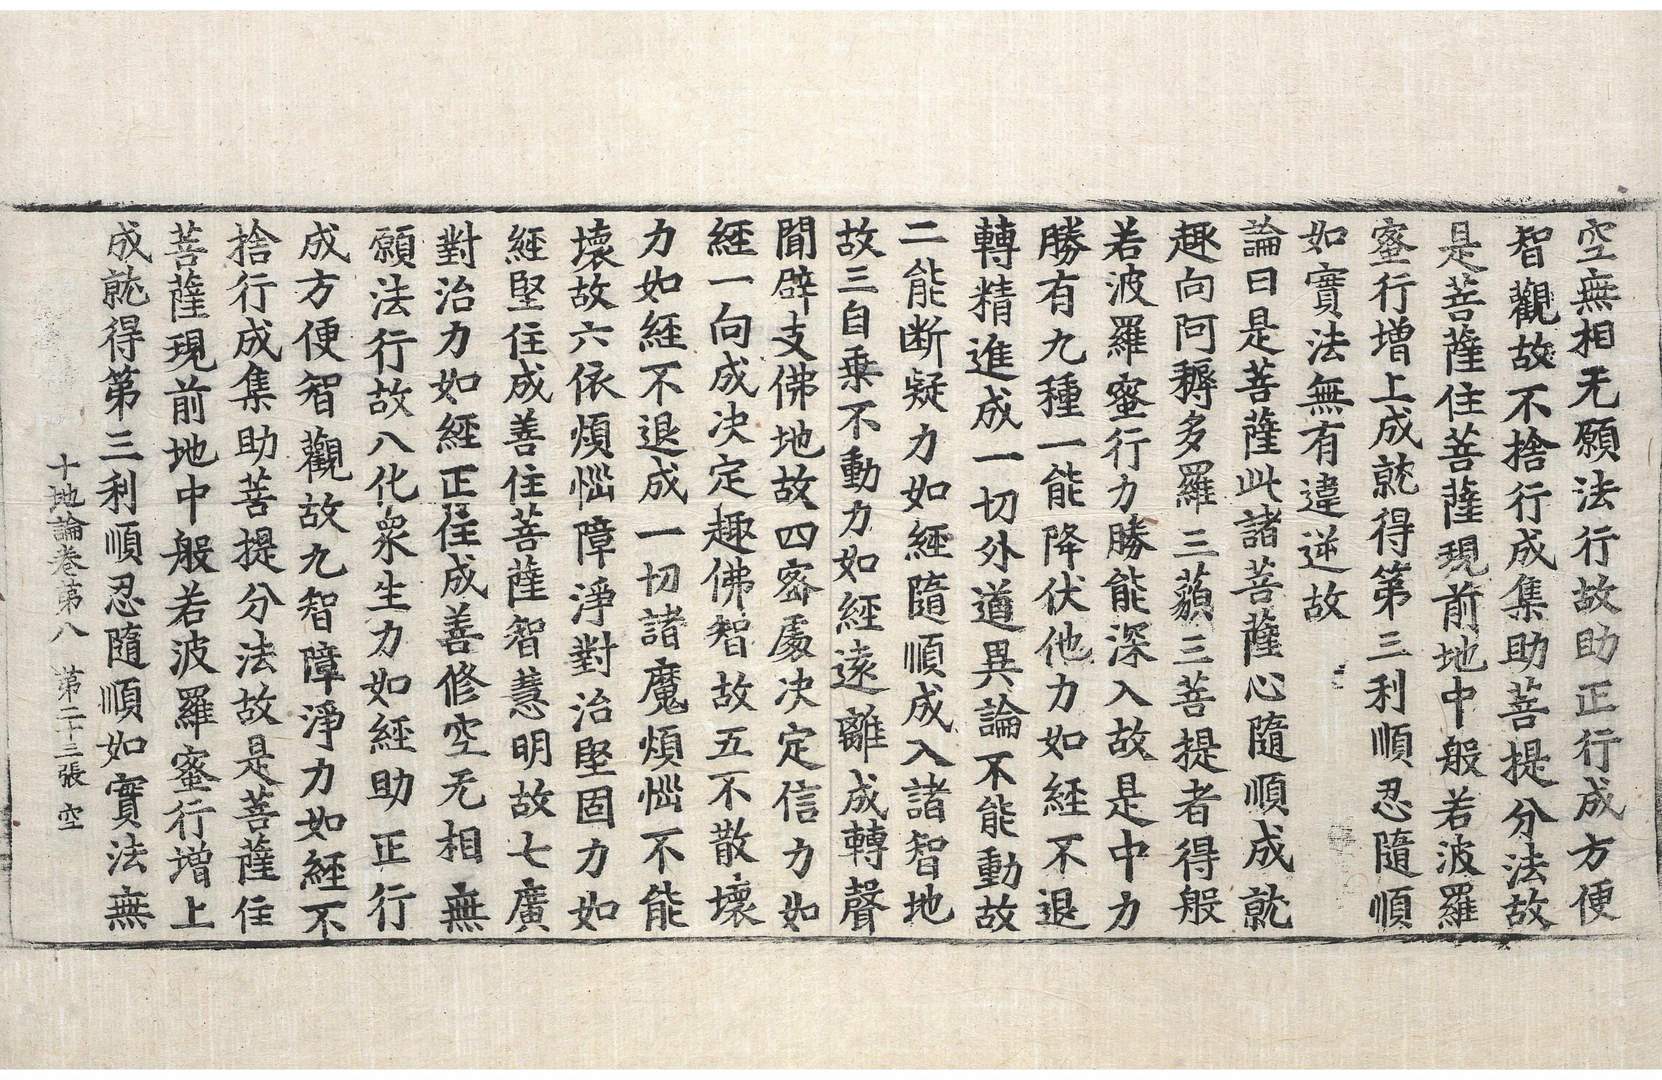 空無相无願法行故助正行成方便
智觀故不捨行成集助菩提分法故
是菩薩住菩薩現前地中般若波羅
蜜行增上成就得第三利順忍隨順
如實法無有違逆故
論曰是菩薩此諸菩薩心隨順成就
趣向阿耨多羅三藐三菩提者得般
若波羅蜜行力勝能深入故是中力
勝有九種一能降伏他力如經不退
轉精進成一切外道異論不能動故
二能断疑力如經隨順成入諸智地
故三自乘不動力如經遠離成轉聲
聞辟支佛地故四密處决定信力如
經一向成决定趣佛智故五不散壞
力如經不退成一切諸魔煩惱不能
壞故六依煩惱障淨對治堅固力如
經堅住成善住菩薩智慧明故七廣
對治力如經正住成善修空无相無
願法行故八化衆生力如經助正行
成方便智觀故九智障淨力如經不
捨行成集助菩提分法故是菩薩住
菩薩現前地中般若波羅蜜行增上
成就得第三利順忍隨順如實法無
十地論卷第八 第二十三張 空